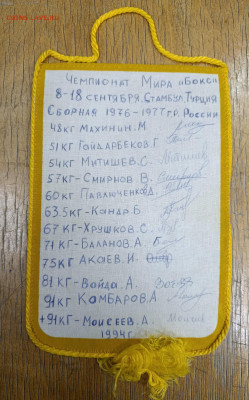 Чемпионат Мира „Бокс"
8-18 сентября. Стамбул, Турция
Сборная 1976-1977 гр. России
48кг Махинин. М
51кг Гайдарбеков. Г
54кг Митишев. С.
57кг-Смирнов. В.
60кг Павлюченко Д.
63.5кг-Канда. Б
67кг-Хрушков. С
71кг-Баланов. А.
75кг Акаев. И.
81кг-Война. А.
91кг Камбаров. А
+91кг-Моисеев. А.
1994г.